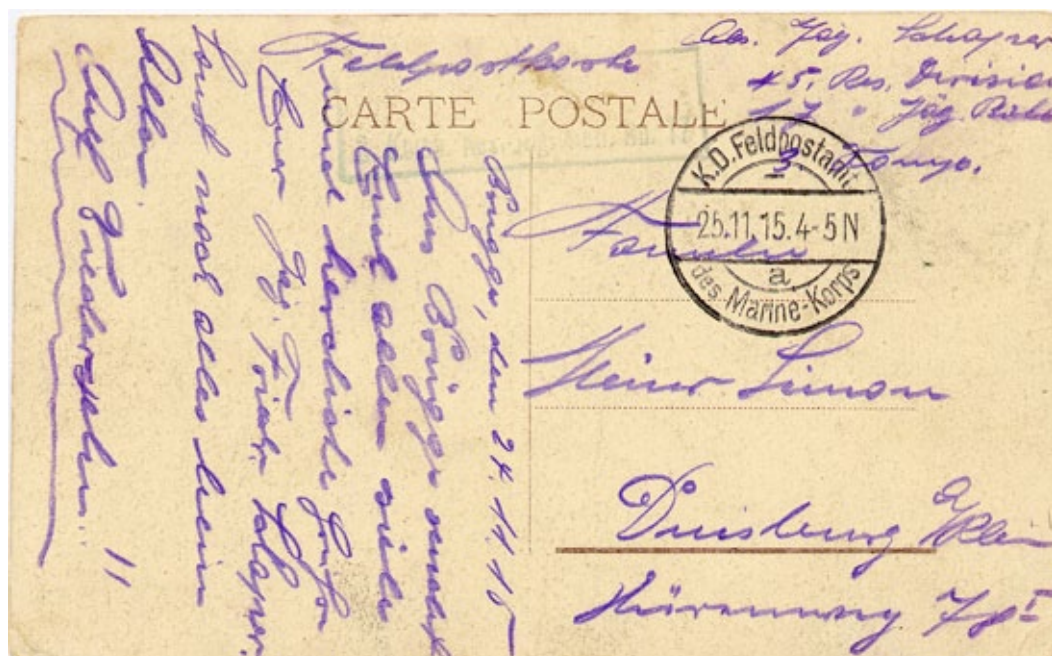 Feldpostkarte
CARTE POSTALE
Abs. Jäg. Schaper
45. Res. Division
Jäg.
3. Komp.
K.D. Feldpostamt
25.11.15. 4-5 N
a
des Marine-Korps
Familie
Heinr. Simon
Duisburg a/Rhein
78 I
Brügge, den 24.11.15
Aus Brügge sendet
Euch allen viele
und herzliche Grüße
Euer Jäg. Friedr. Schaper.
Sonst noch alles beim
Alten.
Auf Wiedersehen!!